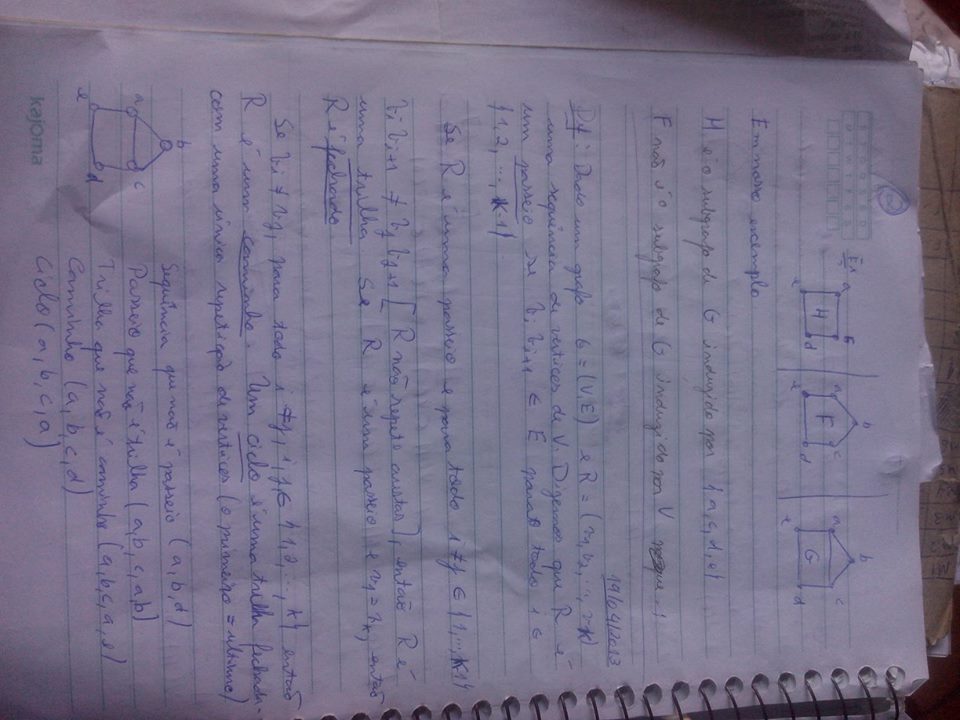 Ex
a b
H
e d
b
a c
F
e d
b
a c
G
e d
Em nosso exemplo
H é o subgrafo de G induzido por {a, c, d, e}
F não é o subgrafo de G induzido por V
19/04/2013
Def: Dado um grafo G = (V, E) e R = (v1, v2, ..., vk)
uma sequência de vertices de V. Dizemos que R é
um passeio se vi vi+1 ∈ E para todo i ∈
{1, 2, ..., k-1}
Se R é uma passeio e para todo i ≠ j ∈ {1, ..., k-1}
vi vi+1 ≠ vj vj+1 [R não repete arestas], então R é
uma trilha Se R é um passeio e v1 = vk, então
R é fechado
Se vi ≠ vj, para todo i ≠ j, i, j ∈ {1, 2, ..., k} então
R é um caminho. Um ciclo é uma trilha fechada
com uma única repetição de vertices (o primeiro = ultimo)
b
a c
e d
Sequência que não é passeio (a, b, d)
Passeio que não é trilha (a, b, c, a, b)
Trilha que não é caminho (a, b, c, a, e)
Caminho (a, b, c, d)
Ciclo (a, b, c, a)
kajoma